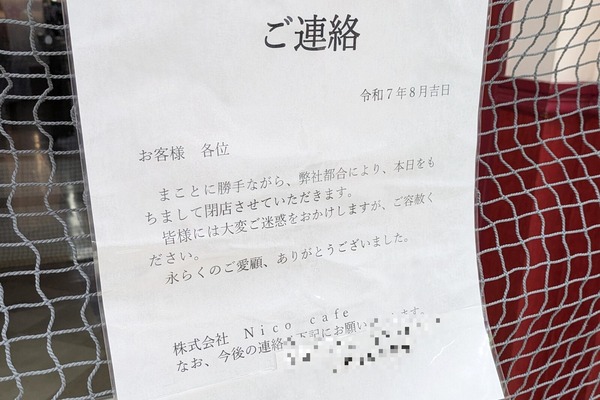 ご連絡
令和7年8月吉日
お客様　各位
まことに勝手ながら、弊社都合により、本日をも
ちまして閉店させていただきます。
皆様には大変ご迷惑をおかけしますが、ご容赦く
ださい。
永らくのご愛顧、ありがとうございました。
株式会社　Ｎｉｃｏ　ｃａｆｅ
なお、今後の連絡 下記にお願い ます。